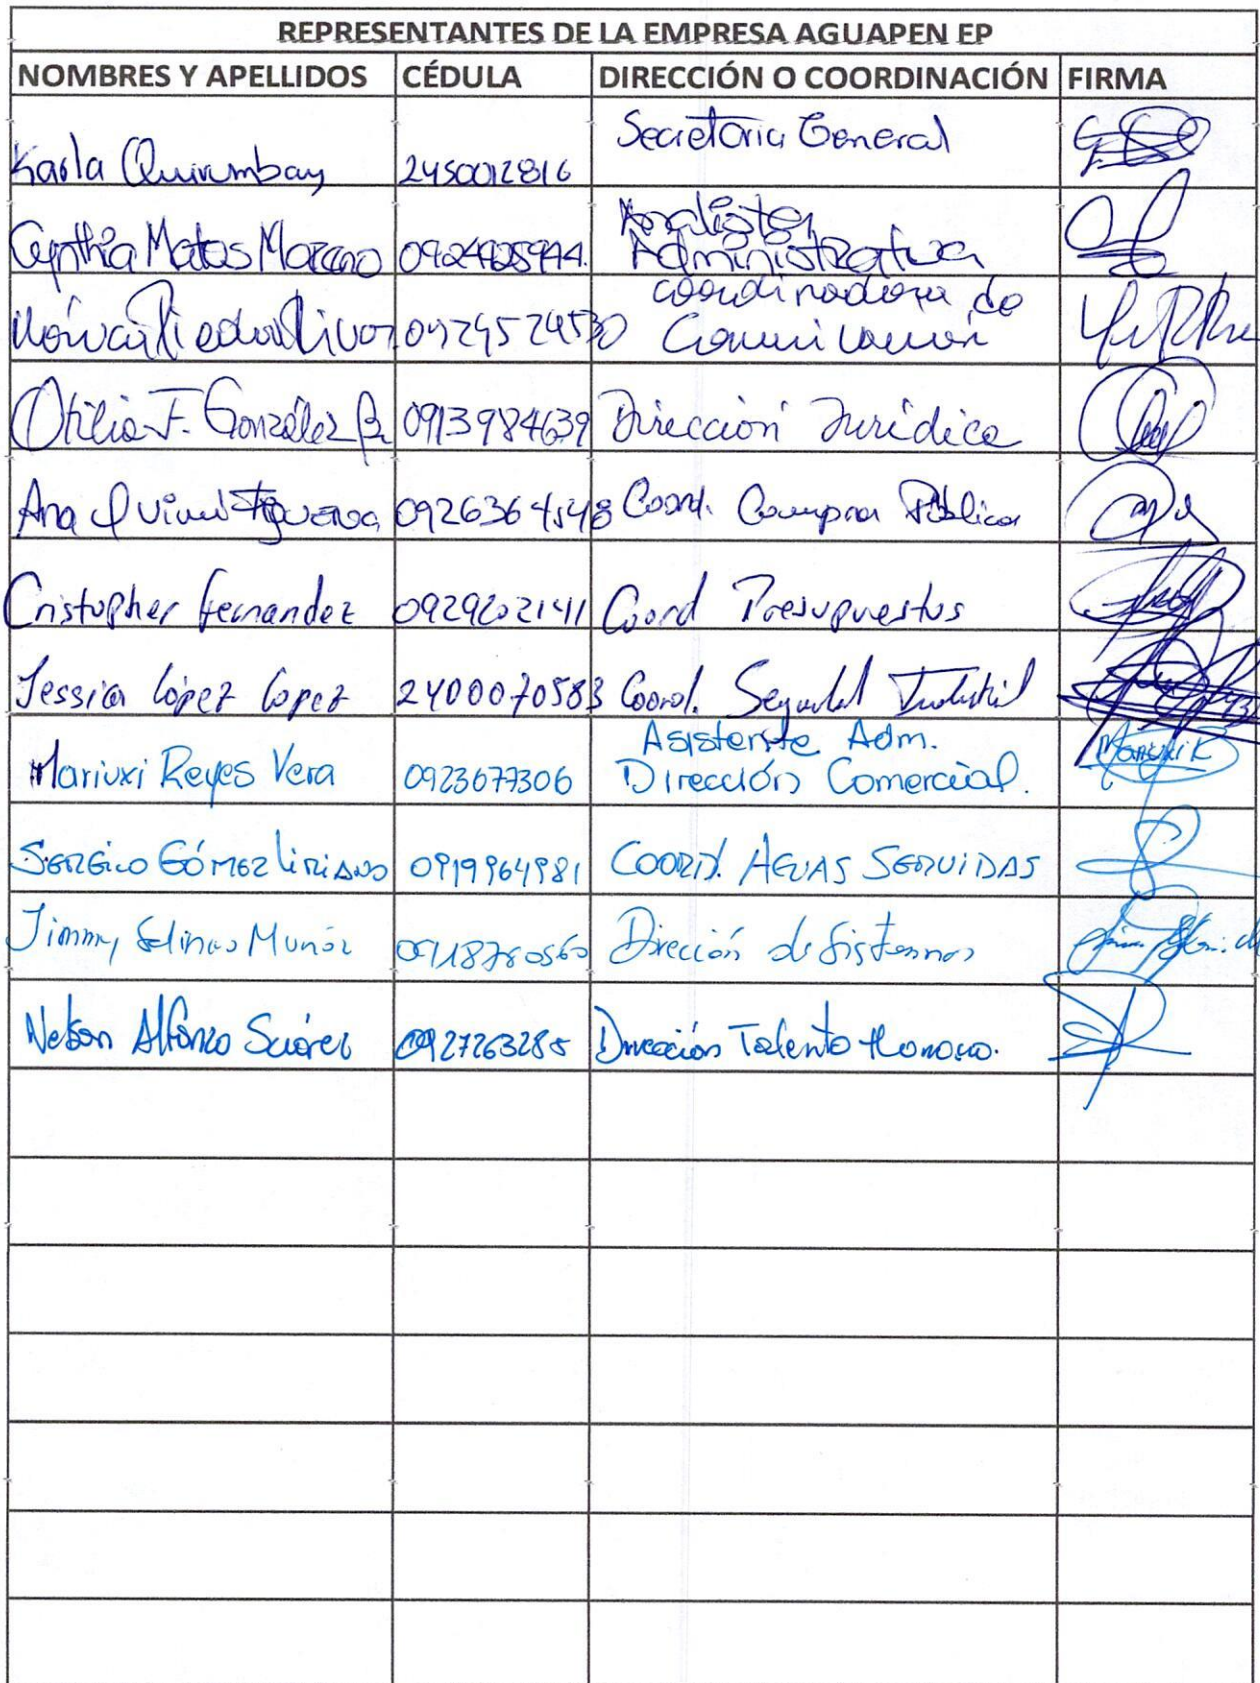 REPRESENTANTES DE LA EMPRESA AGUAPEN EP
NOMBRES Y APELLIDOS CÉDULA DIRECCIÓN O COORDINACIÓN FIRMA
Karla Quirumbay 2450012816 Secretaria General
Cynthia Matos Moreno Analista
Administrativa
0924524530 Coordinadora de
Comunicación
Otilia F. González B. 0913984639 Dirección Jurídica
Ana Quimi Figueroa Coord. Compras Públicas
Cristopher Fernandez 0929202141 Coord Presupuestos
Jessica López López 2400070583 Coord. Seguridad Industrial
Mariuxi Reyes Vera 0923677306 Asistente Adm.
Dirección Comercial.
SERGIO GÓMEZ LIRIANO 0919964981 COORD. AGUAS SERVIDAS
Jimmy Salinas Munóz Direción de Sistemas
Nelson Alfonzo Suárez 0927263285 Dirección Talento Humano.